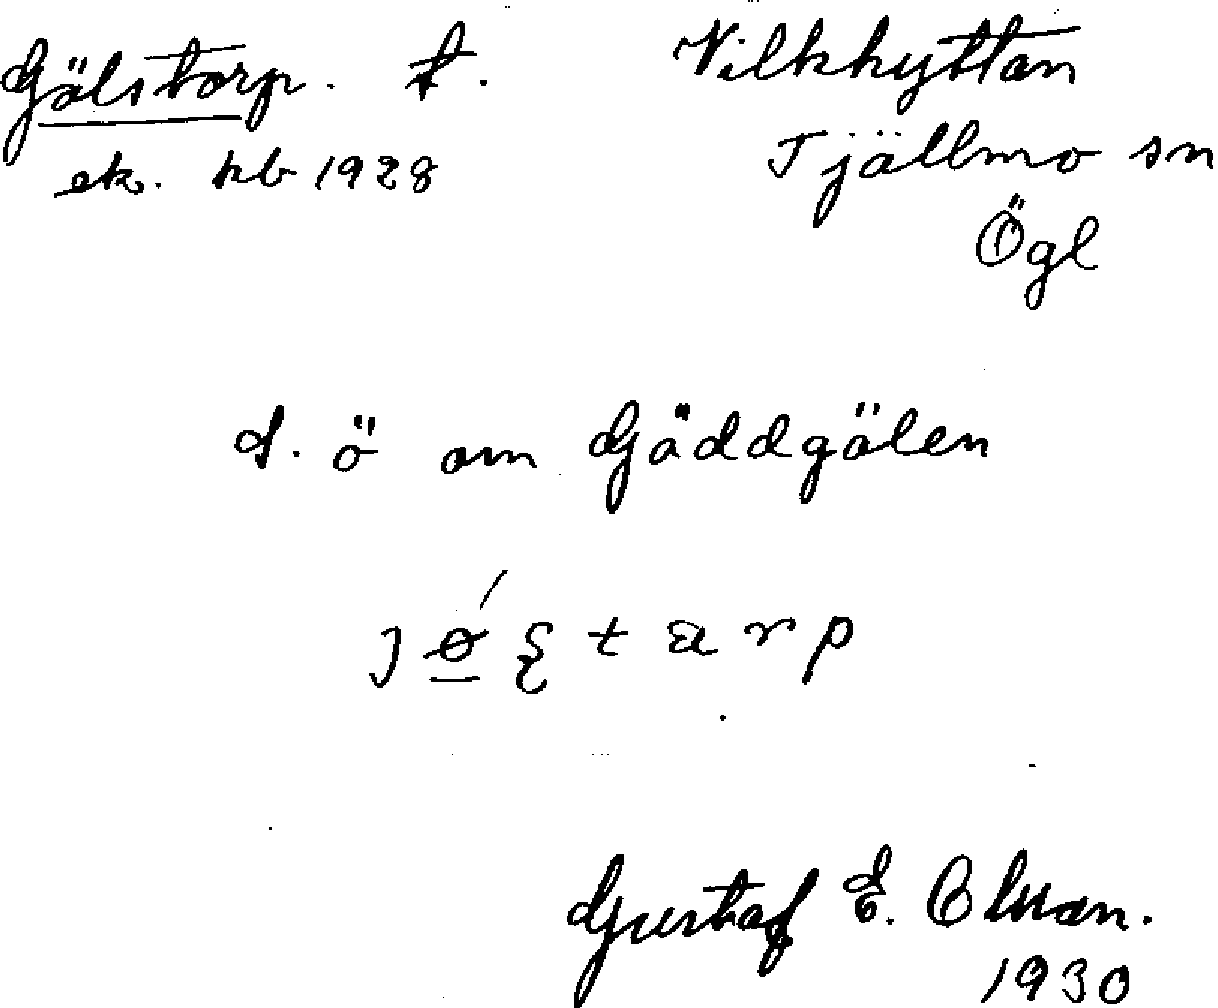 Gölstorp. t. Vilkhyttan
ek. kb 1928 Tjällmo sn
Ögl
s. ö om Gäddgölen
Gustaf E. Olsson.
1930